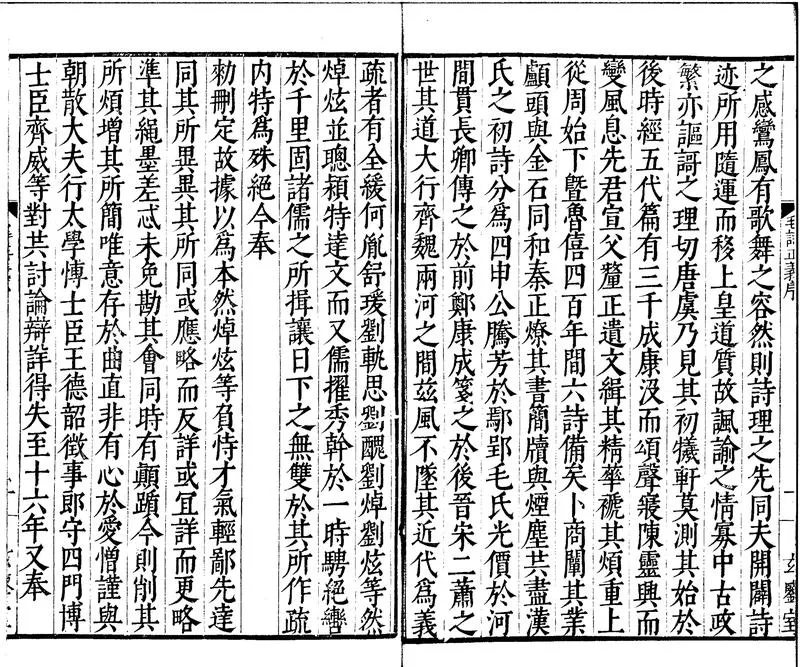 之感鸞鳳有歌舞之容然則詩理之先同夫開闢詩
迹所用隨運而移上皇道質故諷諭之情寡中古政
繁亦謳謌之理切唐虞乃見其初犧軒莫測其始於
後時經五代篇有三千成康没而頌聲寢陳靈興而
變風息先君宣父釐正遺文緝其精華禠其煩重上
從周始下曁魯僖四百年間六詩備矣卜商闡其業
顧頭與金石同和秦正燎其書簡牘與煙塵共盡漢
氏之初詩分爲四申公騰芳於鄢郢毛氏光價於河
間貫長卿傳之於前鄭康成箋之於後晋宋二蕭之
世其道大行齊魏兩河之間玆風不墜其近代爲義
毛詩正義序
疏者有全緩何胤舒瑗劉軌思劉醜劉焯劉炫等然
焯炫並聰穎特達文而又儒擢秀幹於一時騁絕轡
於千里固諸儒之所揖讓日下之無雙於其所作疏
内特爲殊絕今奉
勑刪定故據以爲本然焯炫等負恃才氣輕鄙先達
同其所異異其所同或應略而反詳或宜詳而更略
準其繩墨差忒未免勘其會同時有顛躓今則削其
所煩增其所簡唯意存於曲直非有心於愛憎謹與
朝散大夫行太學愽士臣王德韶徵事郎守四門博
士臣齊威等對共討論辯詳得失至十六年又奉